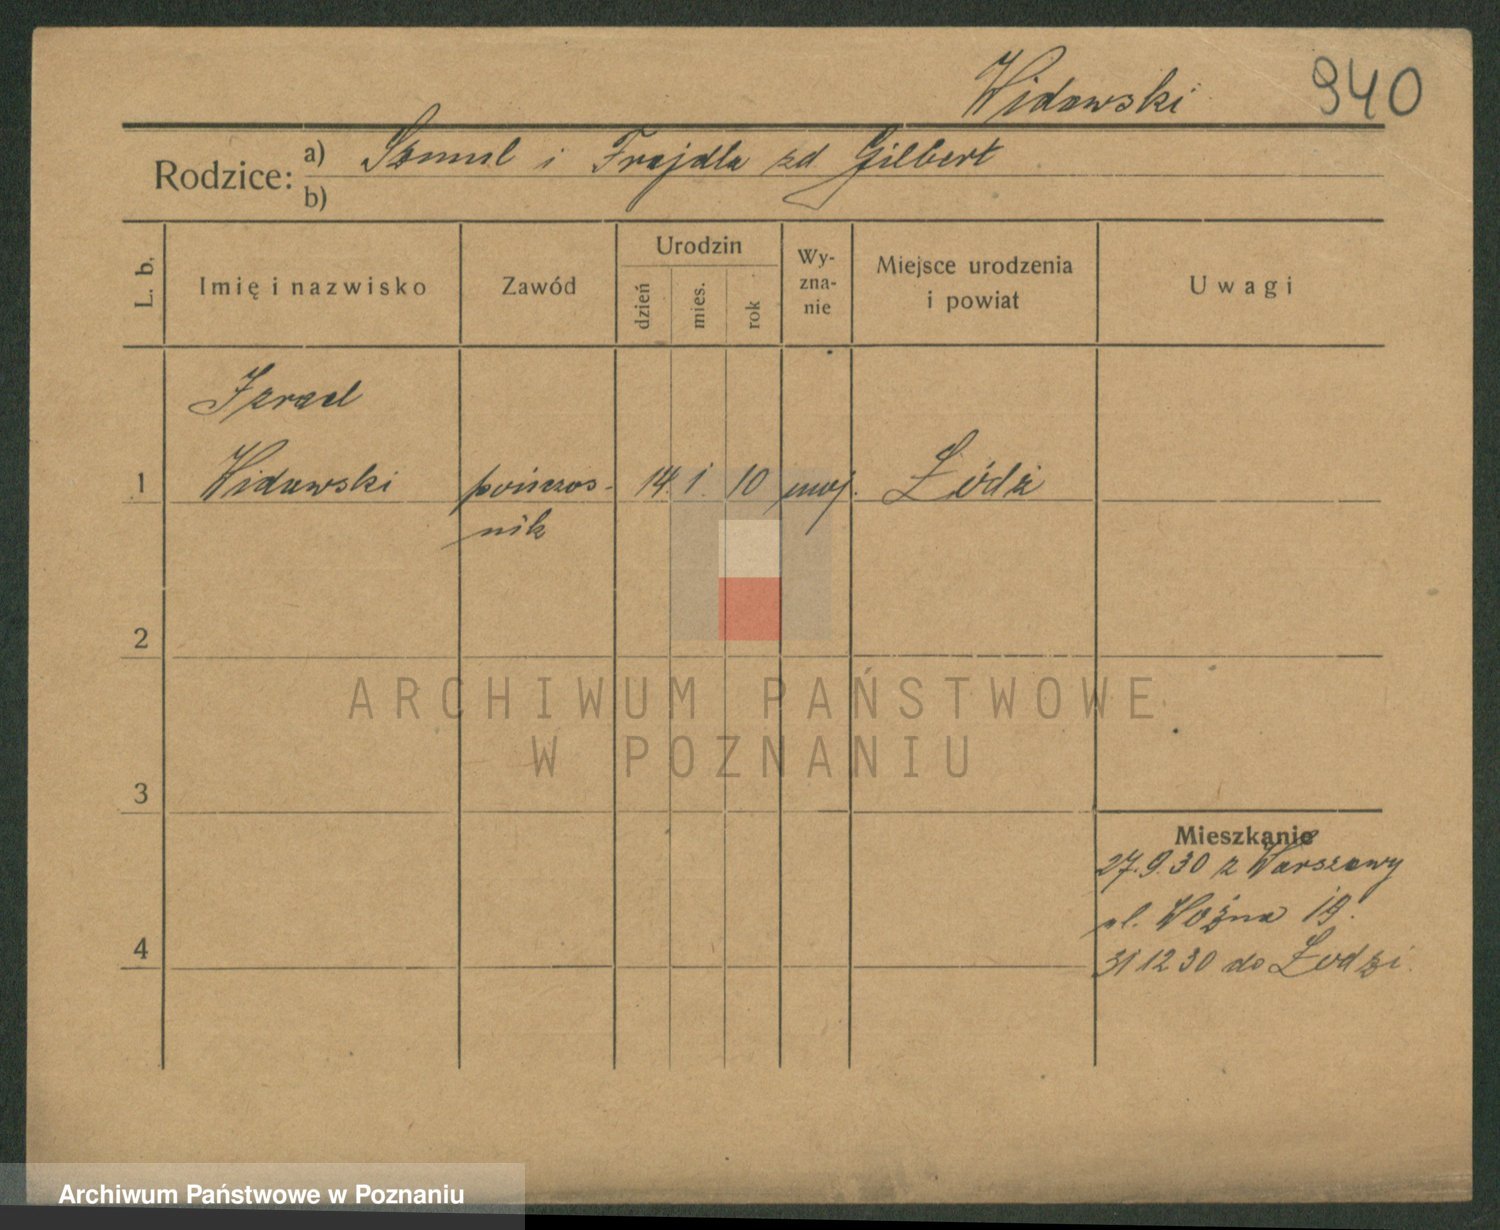 Widawski 940
Rodzice: a) Szmul i Frajdla zd Gilbert
b)
L. b.
Imię i nazwisko
Zawód
Urodzin
dzień
mies.
rok
Wy-
zna-
nie
Miejsce urodzenia
i powiat
Uwagi
Izrael
1 Widawski pończos- 14. 1. 10 moj. Łódź
nik
2
3
4
Mieszkanie
27.9.30 z Warszawy
ul. Woźna 19.
31 12 30 do Łodzi.
ARCHIWUM PAŃSTWOWE
W POZNANIU
Archiwum Państwowe w Poznaniu